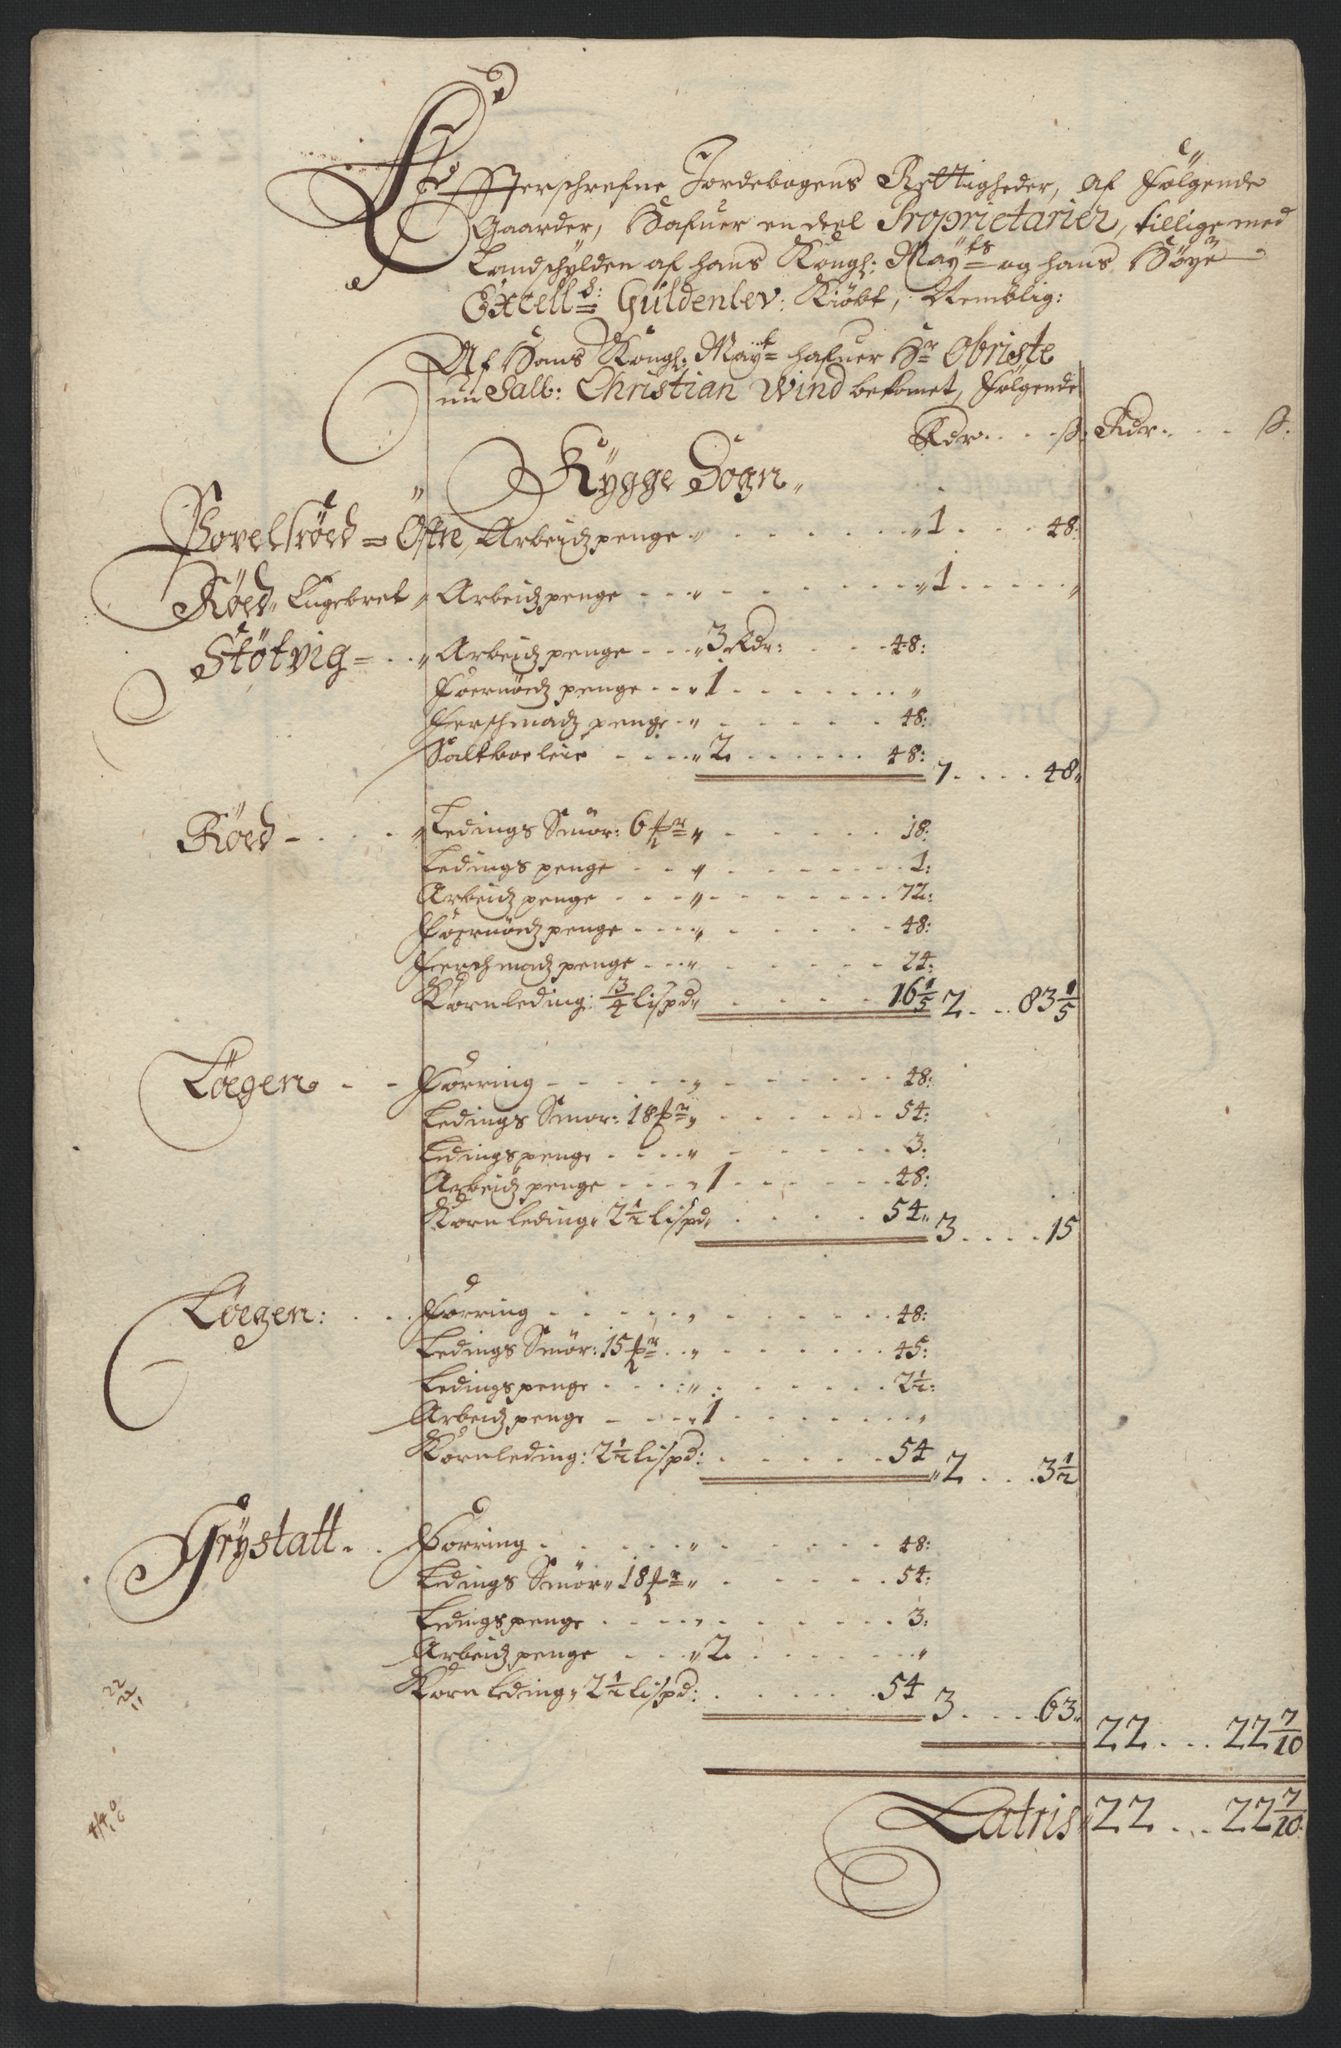 Efterschrefne Jordebogens Rettigheder, af Følgende
Gaarder, Hafuer en deel Proprietarier, tillige med
Landschÿlden af hans Kongl: Maÿts og hans Höÿe
Excell: Güldenlev: Kiöbt, Nemblig:
Af Hans Kongl: Maÿt hafuer Hr Obriste
nu Sall: Christian Wind bekomet, Følgende
Rdr. ß. Rdr. ß.
Rÿgge Sogn
Bovelsröed Östre, Arbeidz penge 1 48:
Röed, Engebret Arbeidz penge 1 "
Stötvig Arbeidz penge 3 Rdr: 48:
Foernöedz penge 1 "
Ferschmadz penge 48:
Saltboeleie 2 48: 7 48
Röed Ledings Smör: 6 18:
Ledings penge 1:
Arbeidz penge 72:
Foernöedz penge 48:
Ferschmadz penge 24:
Kornleding: 3/4 lispd 16 1/5 2 83 1/5
Löegen Forring 48:
Ledings Smör: 18 54:
Ledings penge 3:
Arbeidz penge 1 48:
Korn leding 2 1/2 lispd 54 3 15
Löegen: Forring 48:
Ledings Smör: 15 45:
Ledings penge 2 1/2:
Arbeidz penge 1 "
Kornleding: 2 1/2 lispd: 54 2 3 1/2
Grÿstatt Forring 48:
Ledings Smör 18 54:
Ledings penge 3:
Arbeidz penge 2 "
Korn leding 2 1/2 lispd: 54 3 63
22 22 7/10
Latris 22 22 7/10